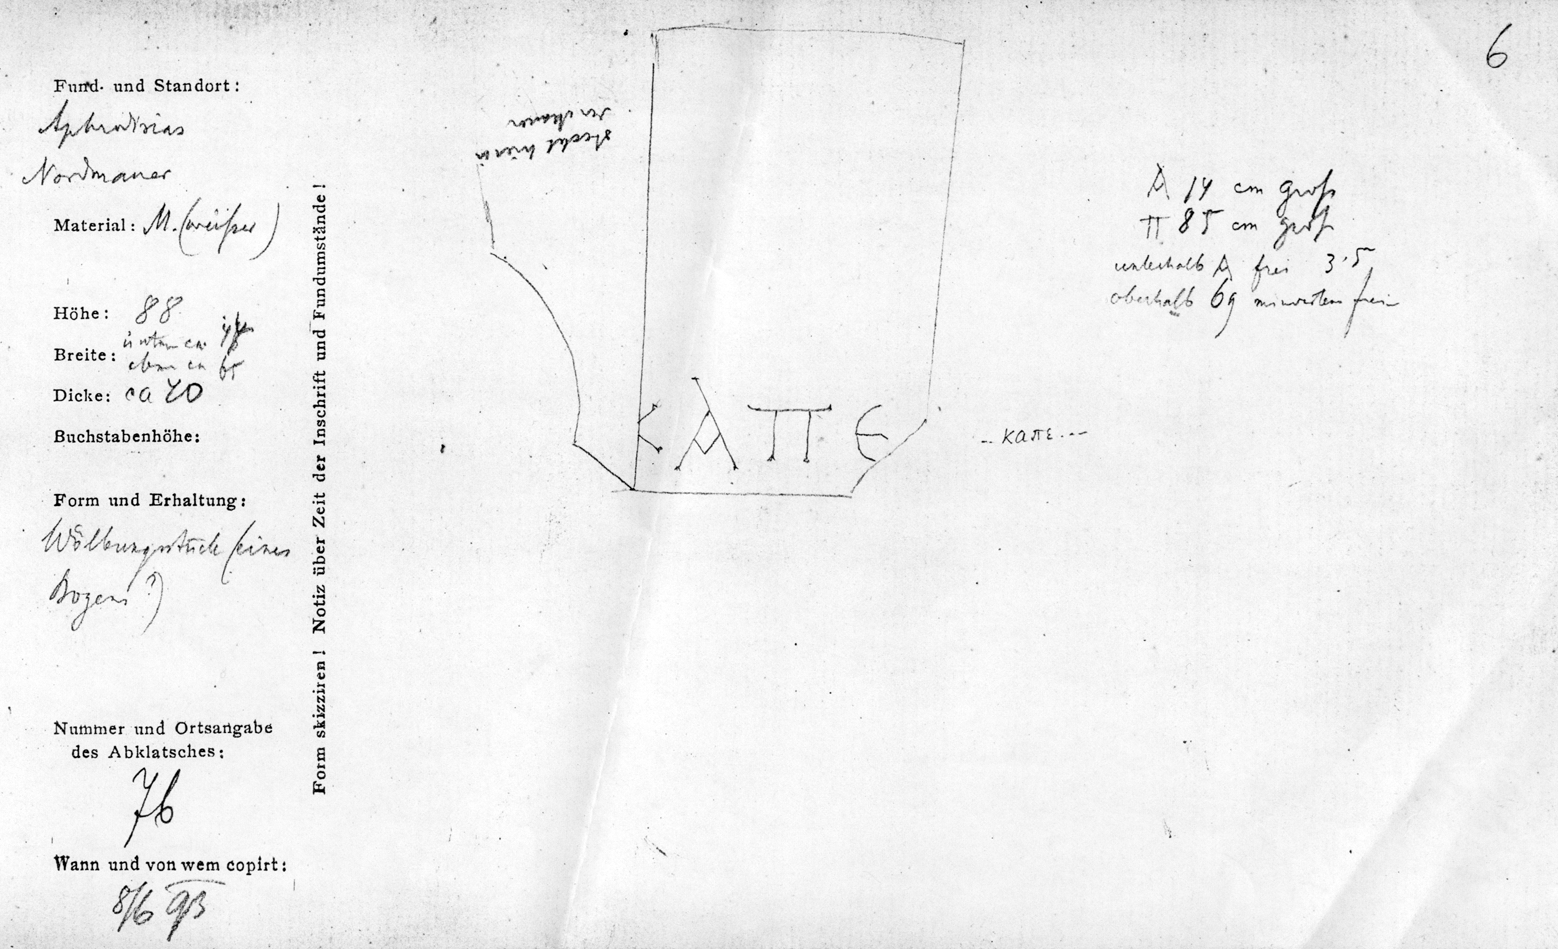 6
Fund- und Standort:
Aphrodisias
Nordmauer
Material: M. (weißer)
Höhe: 88
Breite: unten ca 44
oben ca 65
Dicke: ca 20
Buchstabenhöhe:
Form und Erhaltung:
Wölbungsstück (eines
Bogens?)
Nummer und Ortsangabe
des Abklatsches:
76
Wann und von wem copirt:
8/6 93
Form skizziren! Notiz über Zeit der Inschrift und Fundumstände!
steckt hierin
der Mauer
ΚΑΠΕ
-- καπε ---
Α 14 cm groß
Π 85 cm groß
unterhalb Α frei 3·5
oberhalb 69 mindestens frei